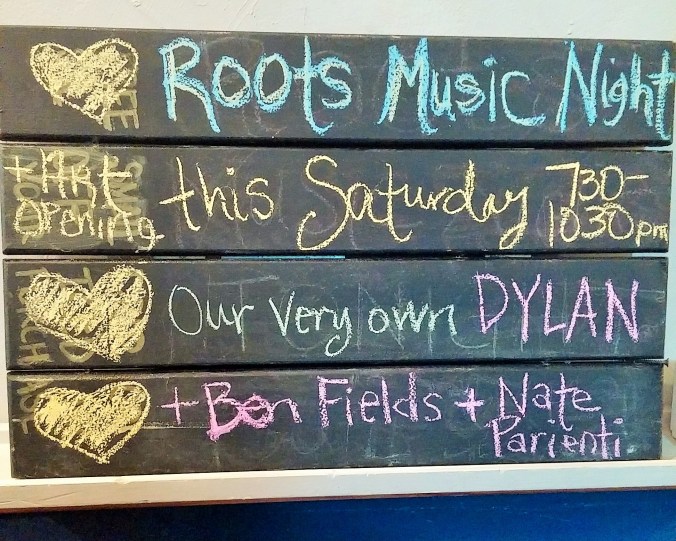 Roots Music Night
+ Art Opening this Saturday 730-1030pm
Our very own DYLAN
+ Ben Fields + Nate Parienti